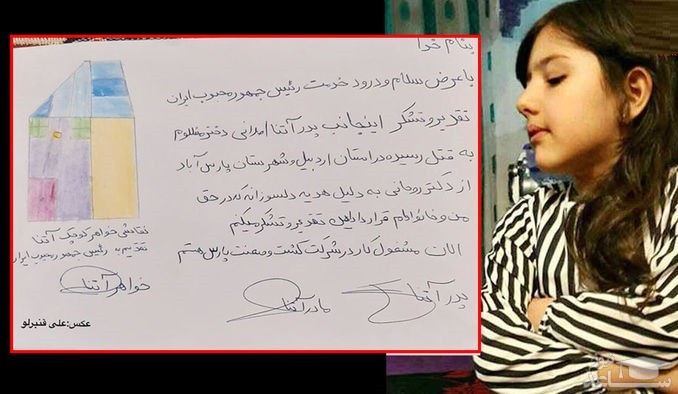 بنام خدا
با عرض سلام و درود خدمت رئیس جمهور محبوب ایران
تقدیر و تشکر اینجانب پدر آتنا اصلانی دختر مظلوم
به قتل رسیده در استان اردبیل و شهرستان پارس آباد
از دکتر روحانی به دلیل هدیه دلسوزانه که در حق
من و خانواده‌ام قرار دادین تقدیر و تشکر میکنم
الان مشغول کار در شرکت کشت و صنعت پارس هستم
پدر آتنا
مادر آتنا
نقاشی خواهر کوچک آتنا
تقدیم به رئیس جمهور محبوب ایران
خواهر آتنا
عکس:علی قنبرلو